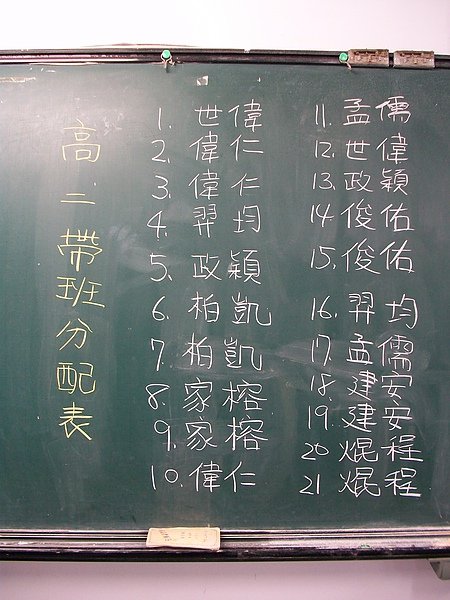 高二帶班分配表
1. 世偉
2. 偉仁
3. 偉仁
4. 羿均
5. 政穎
6. 柏凱
7. 柏凱
8. 家榕
9. 家榕
10. 偉仁
11. 孟儒
12. 世偉
13. 政穎
14 俊佑
15. 俊佑
16. 羿均
17. 孟儒
18. 建安
19. 建安
20 焜程
21 焜程